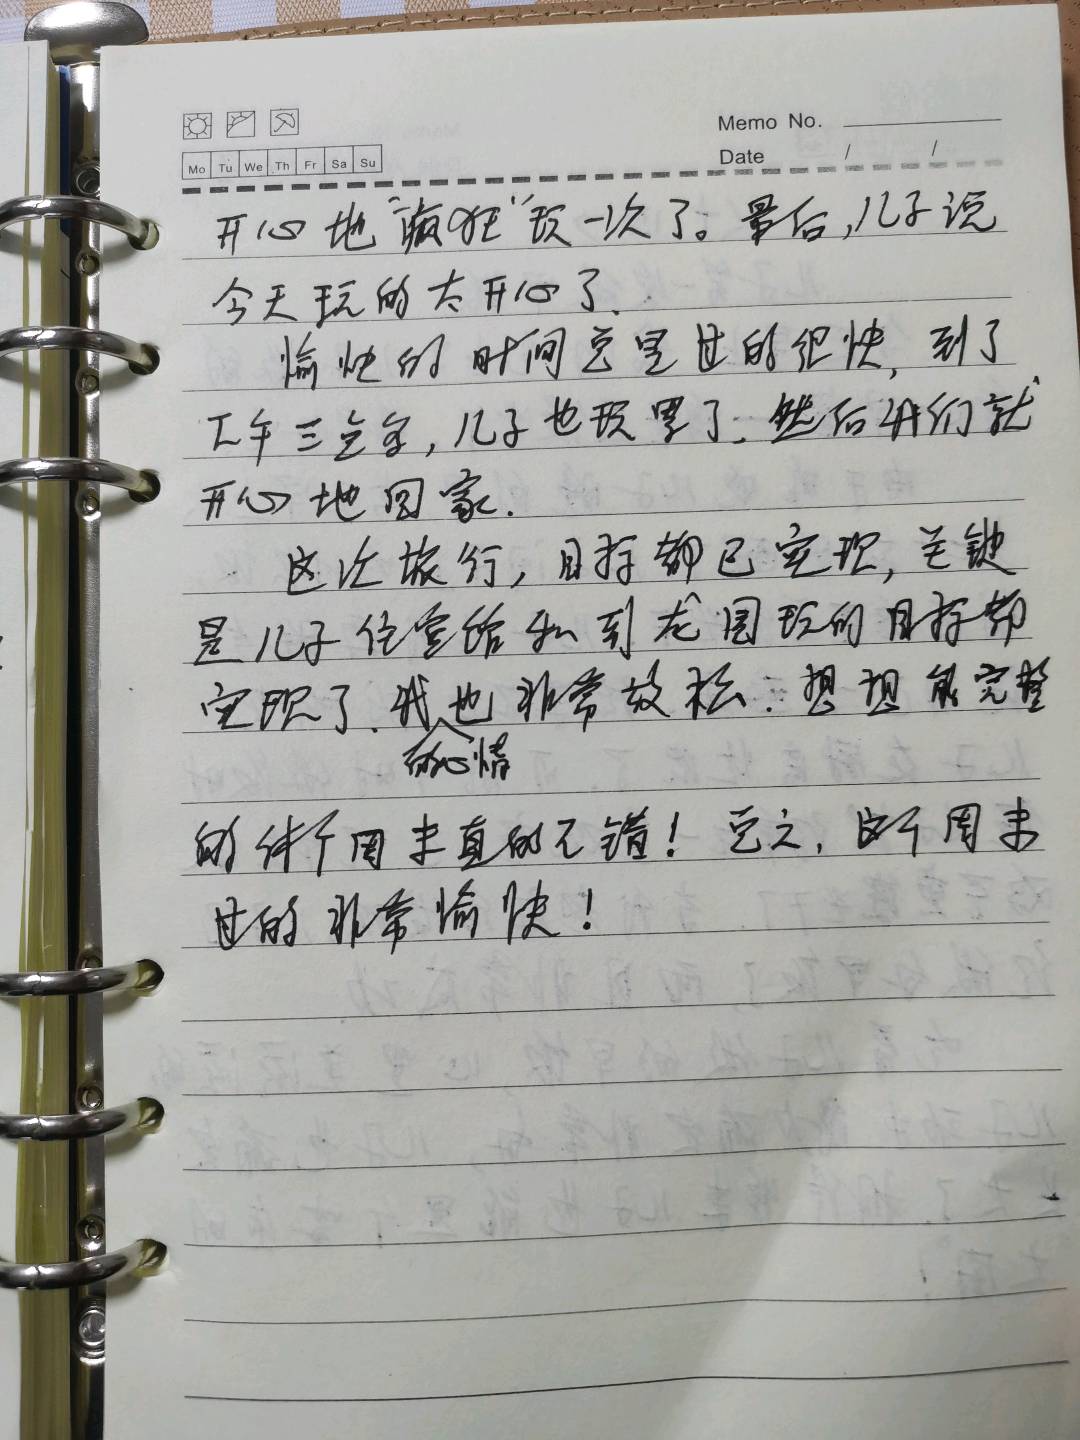 Memo No.
Mo Tu We Th Fr Sa Su
Date / /
开心地"疯狂"玩一次了。最后,儿子说
今天玩的太开心了.
愉快的时间总是过的很快,到了
下午三点多,儿子也玩累了.然后我们就
开心地回家.
这次旅行,目标都已实现,关键
是儿子住宾馆和到龙国玩的目标都
实现了.我的心情也非常放松.想想能完整
的休个周末真的不错!总之,这个周末
过的非常愉快!